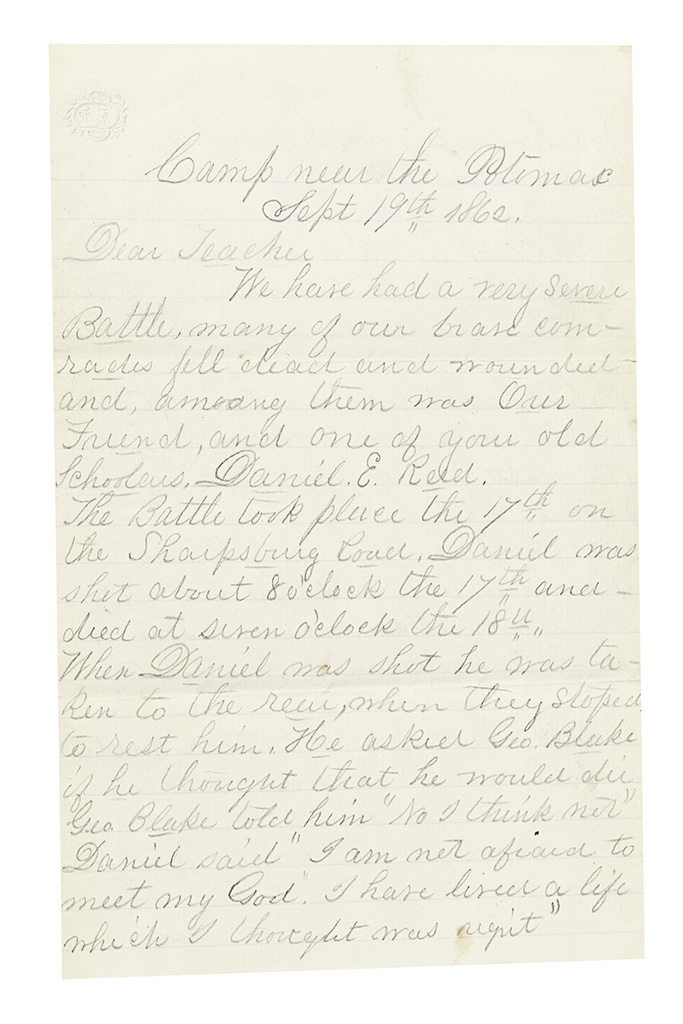 Camp near the Potomac
Sept 19th 1862.
Dear Teacher
We have had a very severe
Battle, many of our brave com-
rades fell dead and wounded
and, among them was Our
Friend, and one of your old
Schoolars. Daniel. E. Reed.
The Battle took place the 17th on
the Sharpsburg Road. Daniel was
shot about 8 o'clock the 17th and
died at seven o'clock the 18th.
When Daniel was shot he was ta-
ken to the rear, when they stoped
to rest him. He asked Geo. Blake
if he thought that he would die
Geo Blake told him "No I think not"
Daniel said "I am not afraid to
meet my God". I have lived a life
which I thought was rigit"